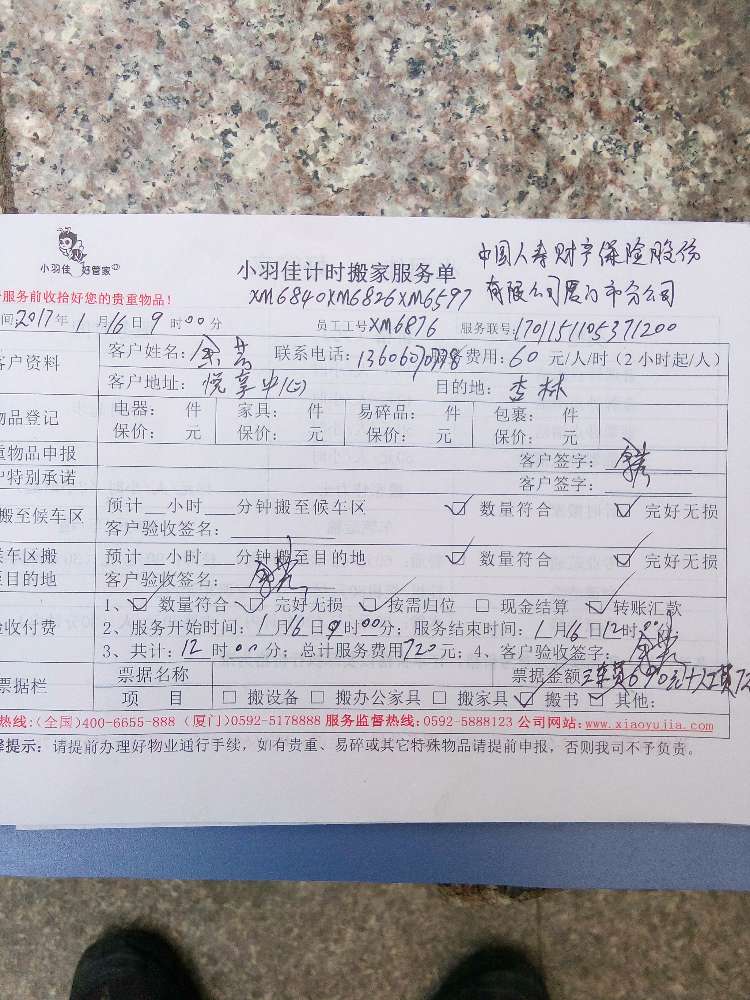 小羽佳 好管家
中国人寿财产保险股份
有限公司厦门市分公司
小羽佳计时搬家服务单
XM6840XM6826XM6597
服务前收拾好您的贵重物品！
间:2017年1月16日9时00分 员工工号XM6876 服务联号:1701151105371200
客户资料 客户姓名: 联系电话: 费用:60元/人/时（2小时起/人）
客户地址: 悦享中心(二) 目的地: 杏林
物品登记 电器: 件 家具: 件 易碎品: 件 包裹: 件
保价: 元 保价: 元 保价: 元 保价: 元
重物品申报 客户签字:
户特别承诺 客户签字:
搬至候车区 预计__小时___分钟搬至候车区 ☑ 数量符合 ☑ 完好无损
客户验收签名:
候车区搬 预计__小时___分钟搬至目的地 ☑ 数量符合 ☑ 完好无损
至目的地 客户验收签名:
验收付费 1、☑ 数量符合 ☑ 完好无损 ☑ 按需归位 □ 现金结算 ☑ 转账汇款
2、服务开始时间: 1月16日9时00分; 服务结束时间: 1月16日12时
3、共计: 12时00分; 总计服务费用720元; 4、客户验收签字:
票据栏 票据名称 票据金额
项 目 □ 搬设备 □ 搬办公家具 □ 搬家具 ☑ 搬书 □ 其他:
热线:(全国)400-6655-888 (厦门)0592-5178888 服务监督热线:0592-5888123 公司网站:www.xiaoyujia.com
提示: 请提前办理好物业通行手续, 如有贵重、易碎或其它特殊物品请提前申报, 否则我司不予负责。